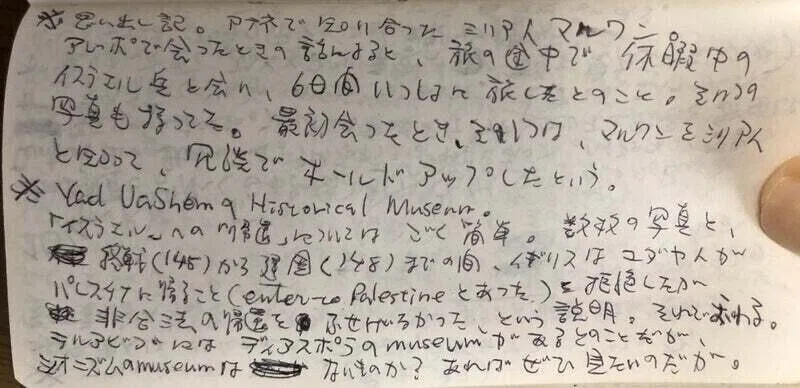 ※ 思い出し記。アテネで知り合ったシリア人マルワン。
アレッポで会ったときの話によると、旅の途中で休暇中の
イスラエル兵と会い、6日間いっしょに旅したとのこと。そいつの
写真も持ってた。最初会ったとき、そいつは、マルワンをシリア人
と知って、冗談でホールドアップしたという。
※ Yad VaShemのHistorical Museum。
「イスラエル」への「帰還」についてはごく簡単。数枚の写真と、
終戦('45)から建国('48)までの間、イギリスはユダヤ人が
パレスチナに帰ること(enter to Palestineとあった)を拒絶したが
非合法の帰還をふせげなかった、という説明。それでおわる。
テルアビブにはディアスポラのmuseumがあるとのことだが、
シオニズムのmuseumはないものか?あればぜひ見たいのだが。